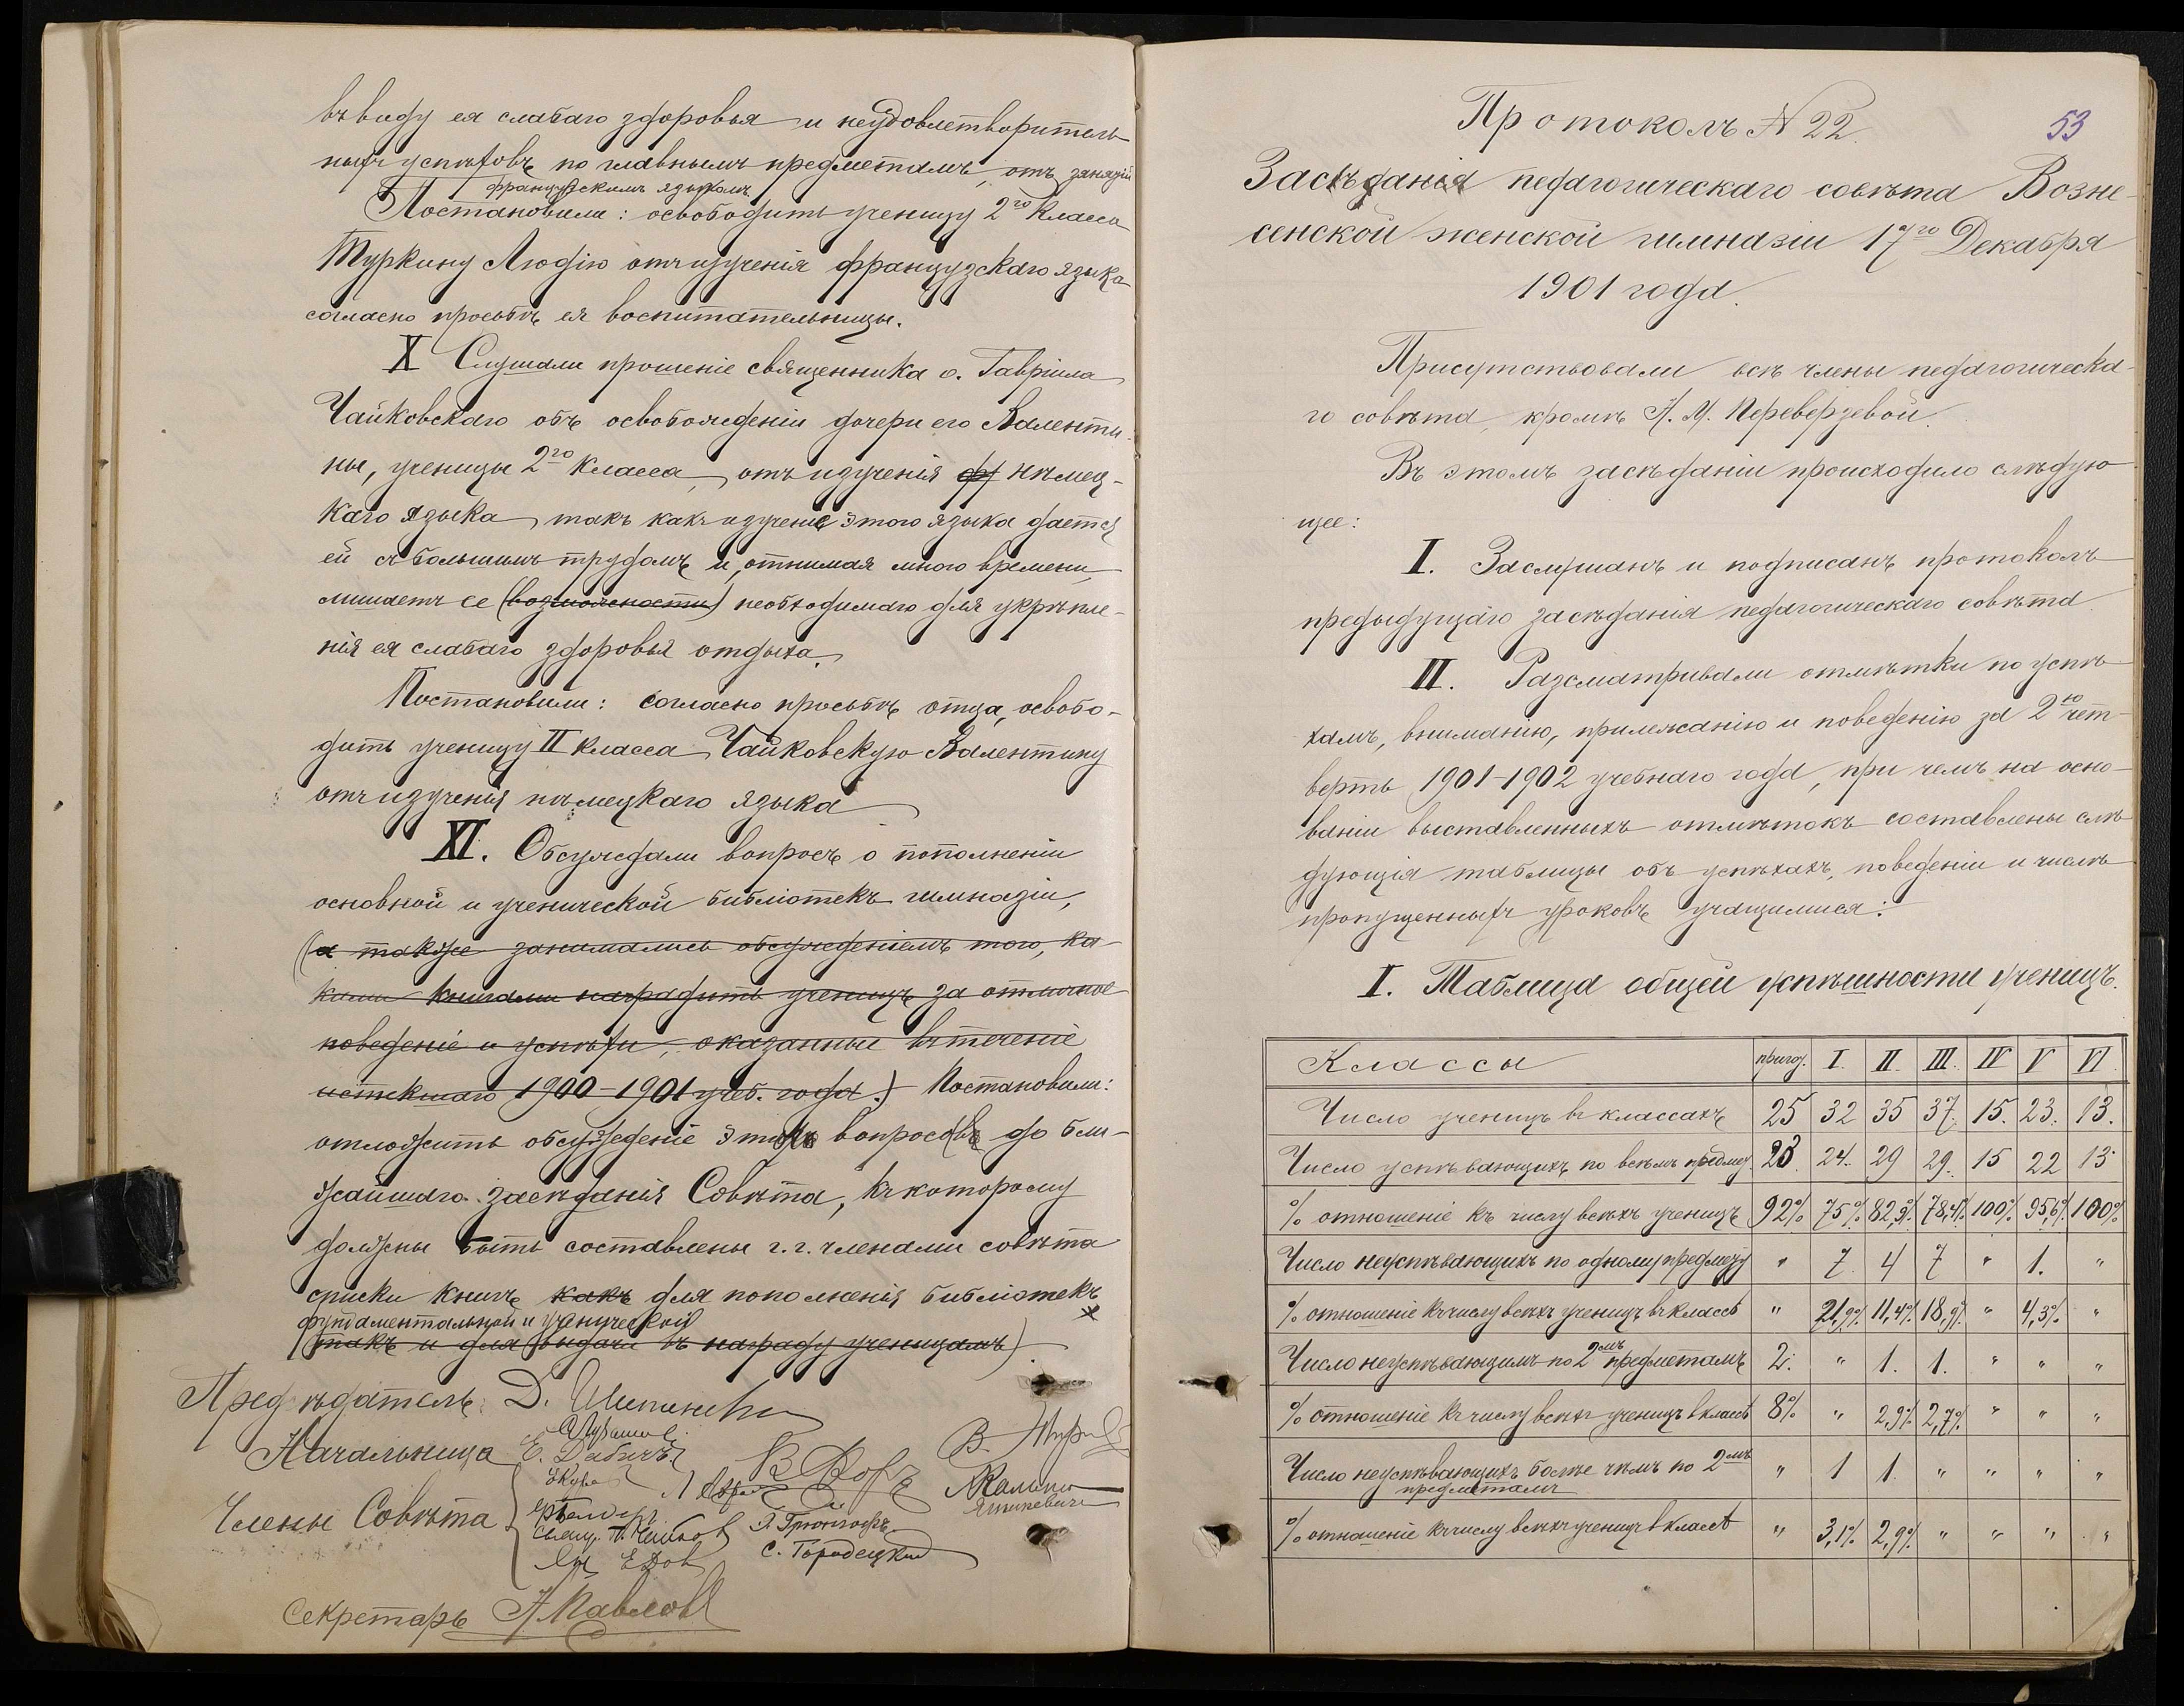 въ виду ея слабаго здоровья и неудовлетворитель-
ныхъ успѣховъ по главнымъ предметамъ, отъ занятій
французскимъ языкомъ
Постановили: освободить ученицу 2го класса
Туркину Лидію отъ изученія французскаго языка
согласно просьбѣ ея воспитательницы.
X Слушали прошеніе священника о. Гавріила
Чайковскаго объ освобожденіи дочери его Валенти-
ны, ученицы 2го класса, отъ изученія фр нѣмец-
каго языка, такъ какъ изученіе этого языка дается
ей съ большимъ трудомъ и, отнимая много времени,
лишаетъ ее (возможности) необходимаго для укрѣпле-
нія ея слабаго здоровья отдыха.
Постановили: согласно просьбѣ отца, освобо-
дить ученицу II класса Чайковскую Валентину
отъ изученія нѣмецкаго языка
XI. Обсуждали вопросъ о пополненіи
основной и ученической библіотекъ гимназіи,
(а также занимались обсужденіемъ того, ка-
кими книгами наградить ученицъ за отличное
поведеніе и успѣхи, оказанные въ теченіе
истекшаго 1900-1901 учеб. года.) Постановили:
отложить обсужденіе этихъ вопросовъ до бли-
жайшаго засѣданія Совѣта, къ которому
должны быть составлены г.г. членами совѣта
списки книгъ какъ для пополненія библіотекъ
фундаментальной и ученической
(такъ и для выдачи въ награду ученицамъ)
Предсѣдатель: Д.
Начальница Е.
Члены Совѣта
С. Городецкий
Секретарь Н. Павловъ
53
Протоколъ № 22.
Засѣданія педагогическаго совѣта Возне-
сенской женской гимназіи 17го Декабря
1901 года.
Присутствовали всѣ члены педагогическа-
го совѣта, кромѣ А. М. Переверзевой.
Въ этомъ засѣданіи происходило слѣдую-
щее:
I. Заслушанъ и подписанъ протоколъ
предыдущаго засѣданія педагогическаго совѣта.
II. Разсматривали отмѣтки по успѣ-
хамъ, вниманію, прилежанію и поведенію за 2ю чет-
верть 1901-1902 учебнаго года, при чемъ на осно-
ваніи выставленныхъ отмѣтокъ составлены слѣ-
дующія таблицы объ успѣхахъ, поведеніи и числѣ
пропущенныхъ уроковъ учащимися:
I. Таблица общей успѣшности ученицъ.
Классы пригот. I. II. III. IV V VI.
Число ученицъ въ классахъ 25 32 35 37. 15. 23. 13.
Число успѣвающихъ по всѣмъ предмет. 23. 24. 29 29. 15 22 13
% отношеніе къ числу всѣхъ ученицъ 92% 75% 82,9% 78,4% 100% 95,6% 100%
Число неуспѣвающихъ по одному предмету " 7. 4 7 " 1. "
% отношеніе къ числу всѣхъ ученицъ въ классѣ " 21,9% 11,4% 18,9% " 4,3% "
Число неуспѣвающимъ по 2мъ предметамъ 2. " 1. 1. " " "
% отношеніе къ числу всѣхъ ученицъ въ классѣ 8% " 2,9% 2,7% " " "
Число неуспѣвающихъ болѣе чѣмъ по 2мъ " 1 1 " " " "
предметамъ
% отношеніе къ числу всѣхъ ученицъ въ классѣ " 3,1% 2,9% " " " "